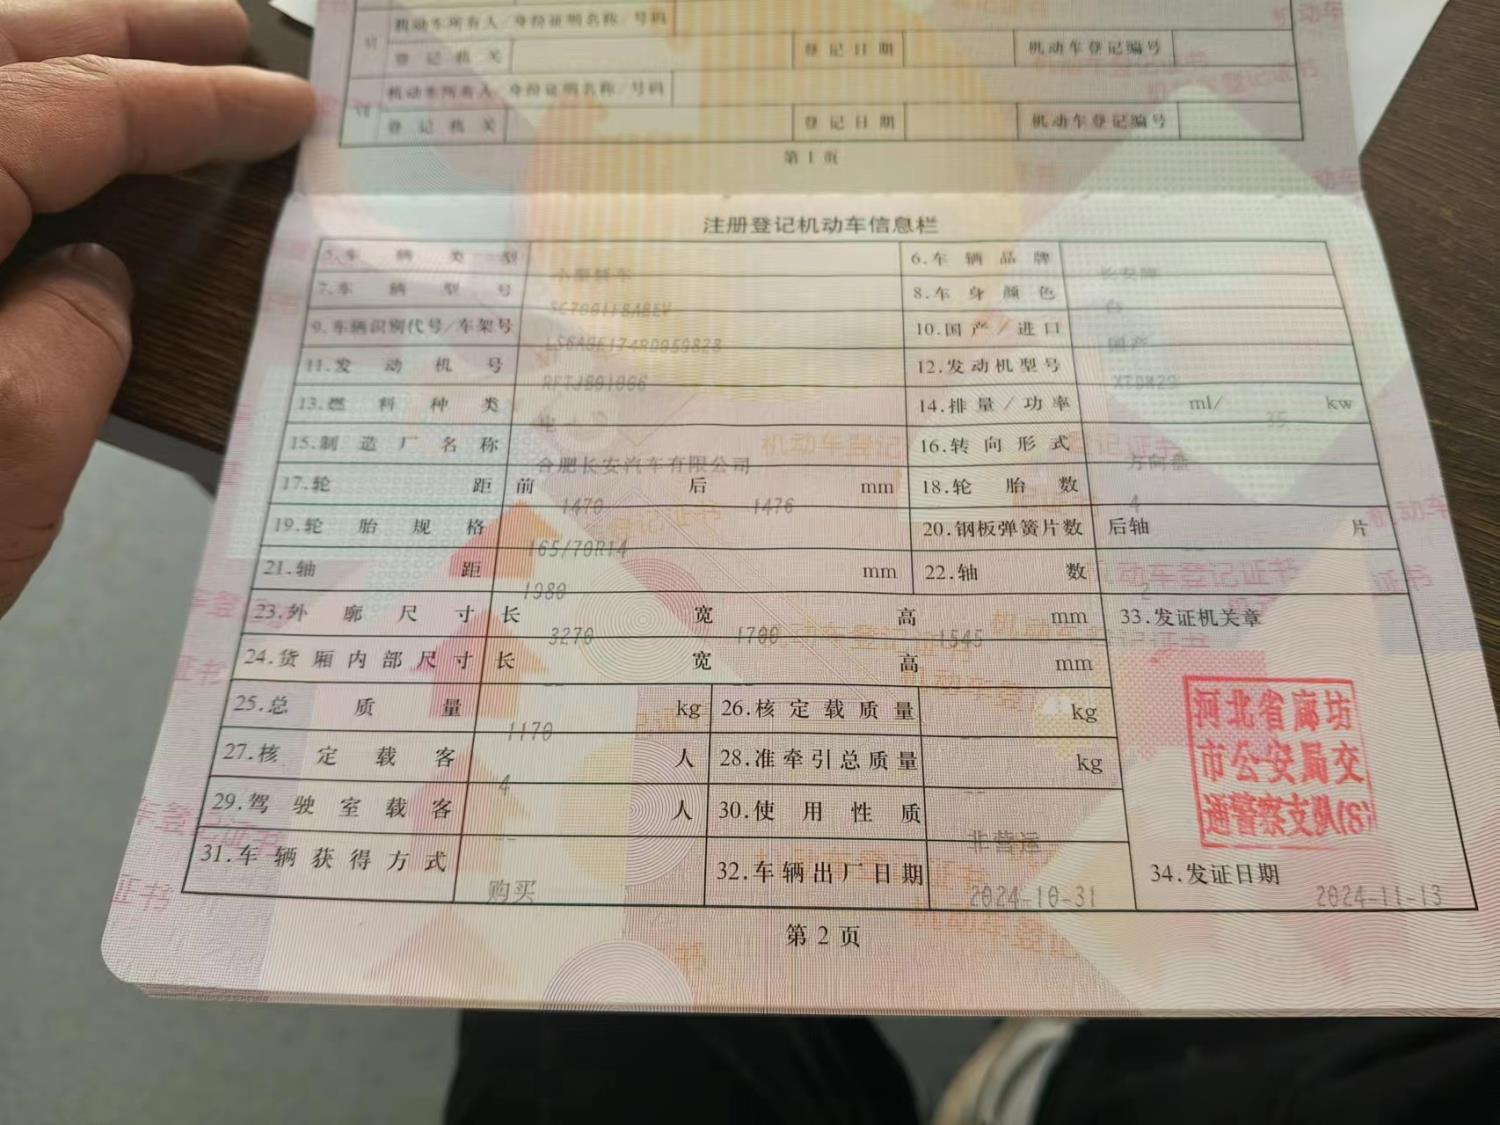 机动车所有人/身份证明名称/号码
VI 登记机关 登记日期 机动车登记编号
机动车所有人/身份证明名称/号码
VII 登记机关 登记日期 机动车登记编号
第 1 页
注册登记机动车信息栏
5.车辆类型 小型轿车 6.车辆品牌 长安牌
7.车辆型号 8.车身颜色 白
9.车辆识别代号/车架号 10.国产/进口 国产
11.发动机号 12.发动机型号
13.燃料种类 电 14.排量/功率 ml/ 35 kw
15.制造厂名称 合肥长安汽车有限公司 16.转向形式 方向盘
17.轮距 前 1470 后 1476 mm 18.轮胎数 4
19.轮胎规格 165/70R14 20.钢板弹簧片数 后轴 -- 片
21.轴距 1980 mm 22.轴数 2
23.外廓尺寸 长 3270 宽 1700 高 1545 mm 33.发证机关章
24.货厢内部尺寸 长 -- 宽 -- 高 -- mm
25.总质量 1170 kg 26.核定载质量 -- kg
27.核定载客 4 人 28.准牵引总质量 -- kg
29.驾驶室载客 -- 人 30.使用性质 非营运
31.车辆获得方式 购买 32.车辆出厂日期 2024-10-31 34.发证日期 2024-11-13
河北省廊坊
市公安局交
通警察支队(8)
第 2 页